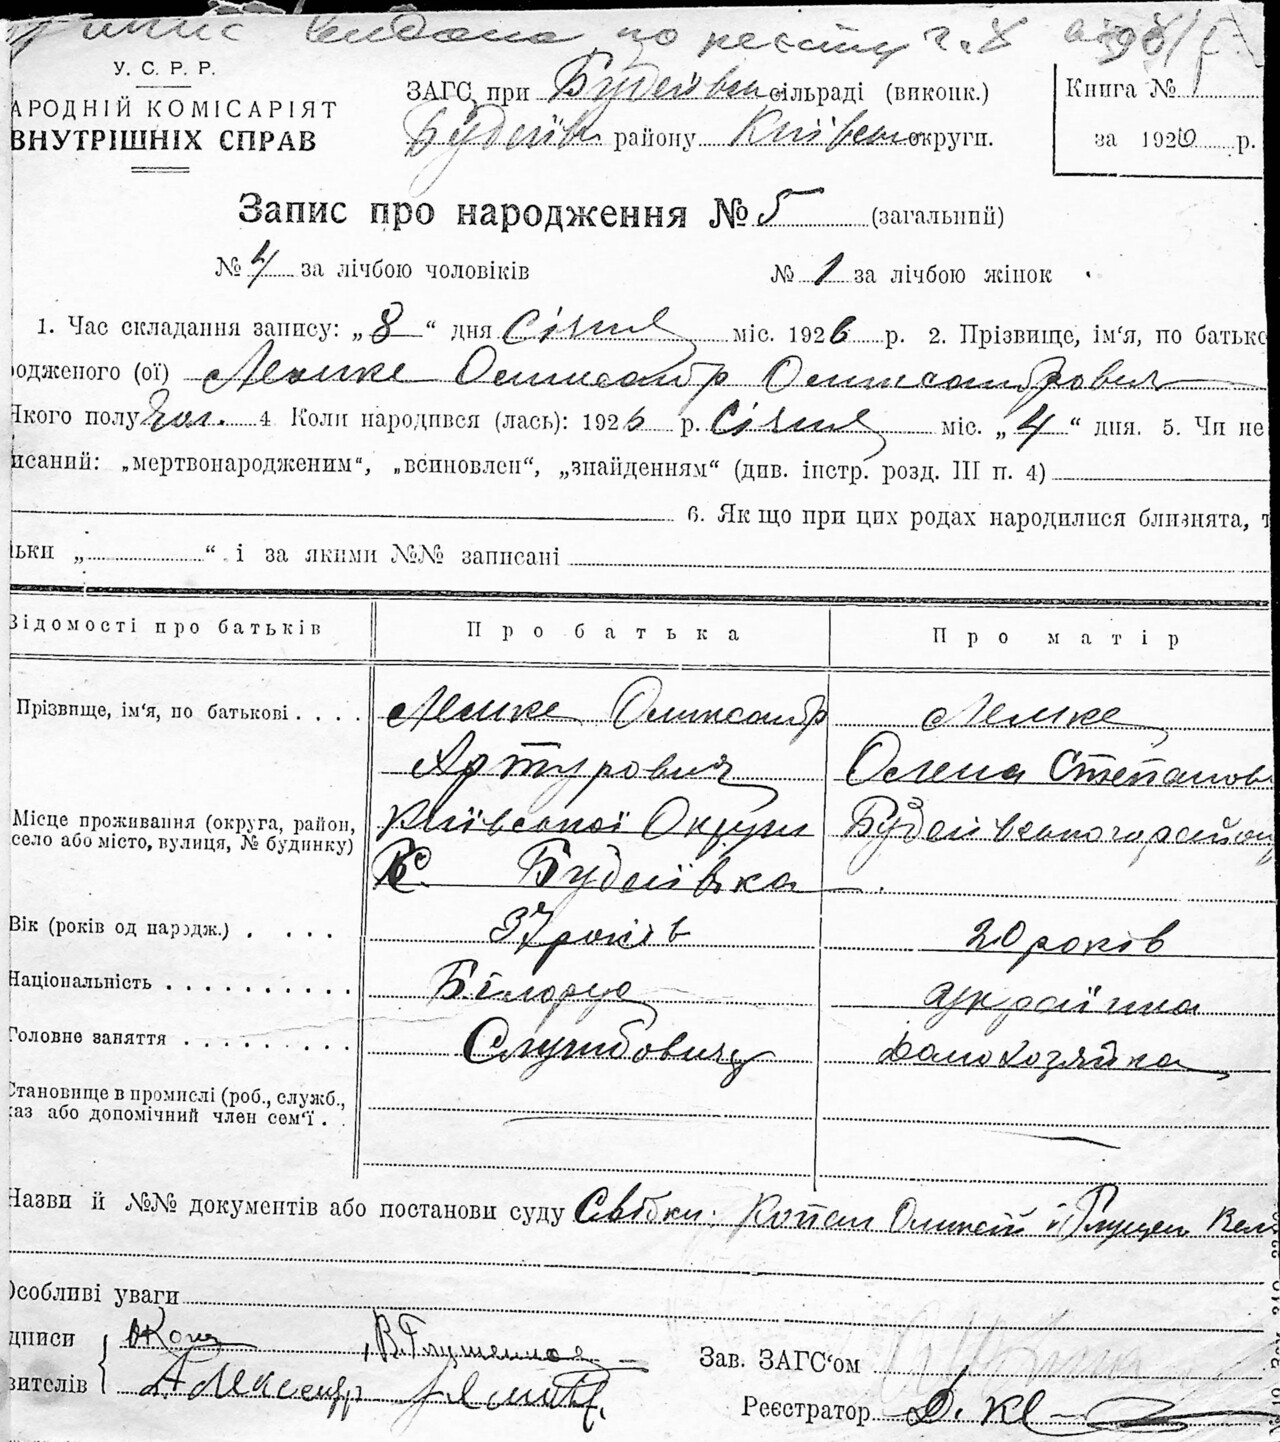 видана по реєстру
У. С. Р. Р.
АРОДНІЙ КОМІСАРІЯТ
ВНУТРІШНІХ СПРАВ
ЗАГС при Будаївськ сільраді (виконк.)
Будаївс району Київськ округи.
Книга №
за 1926 р.
Запис про народження № 5 (загальний)
№ 4 за лічбою чоловіків № 1 за лічбою жінок
1. Час складання запису: „8“ дня Січня міс. 1926 р. 2. Прізвище, ім'я, по батько
одженого (ої) Лемке Олександр Олександрович
Якого полу чол. 4 Коли народився (лась): 1926 р. Січня міс. „4“ дня. 5. Чи не
исаний: „мертвонародженим“, „всиновлен“, „знайденням“ (див. інстр. розд. III п. 4)
6. Якщо при цих родах народилися близнята, т
ьки „ “ і за якими №№ записані
Відомості про батьків Про батька Про матір
Прізвище, ім'я, по батькові . . . . Лемке Олександр Лемке
Артурович Олена Степанов
Місце проживання (округа, район, Київської Округи Будаївського район
село або місто, вулиця, № будинку)
с. Будаївка
Вік (років од народж.) . . . . 37 років 20 років
Національність . . . . . . . . . . Білорус українка
Головне заняття . . . . . . . . . Службовець домохозяйка
Становище в промислі (роб., служб.,
каз або допомічний член сем'ї . .
Назви й №№ документів або постанови суду Свідки: Копил Олексій й
Особливі уваги
дписи
вителів Александр Лемке
Зав. ЗАГС'ом
Реєстратор Д. Кл